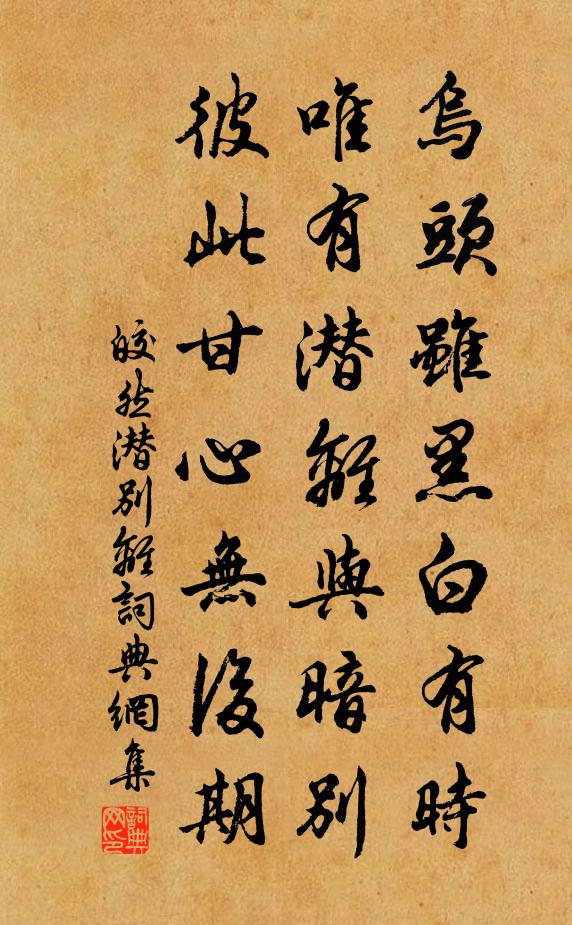 烏頭雖黑白有時
唯有潜離與暗別
彼此甘心無後期
皎然潜別離詞典網集
詞典网印